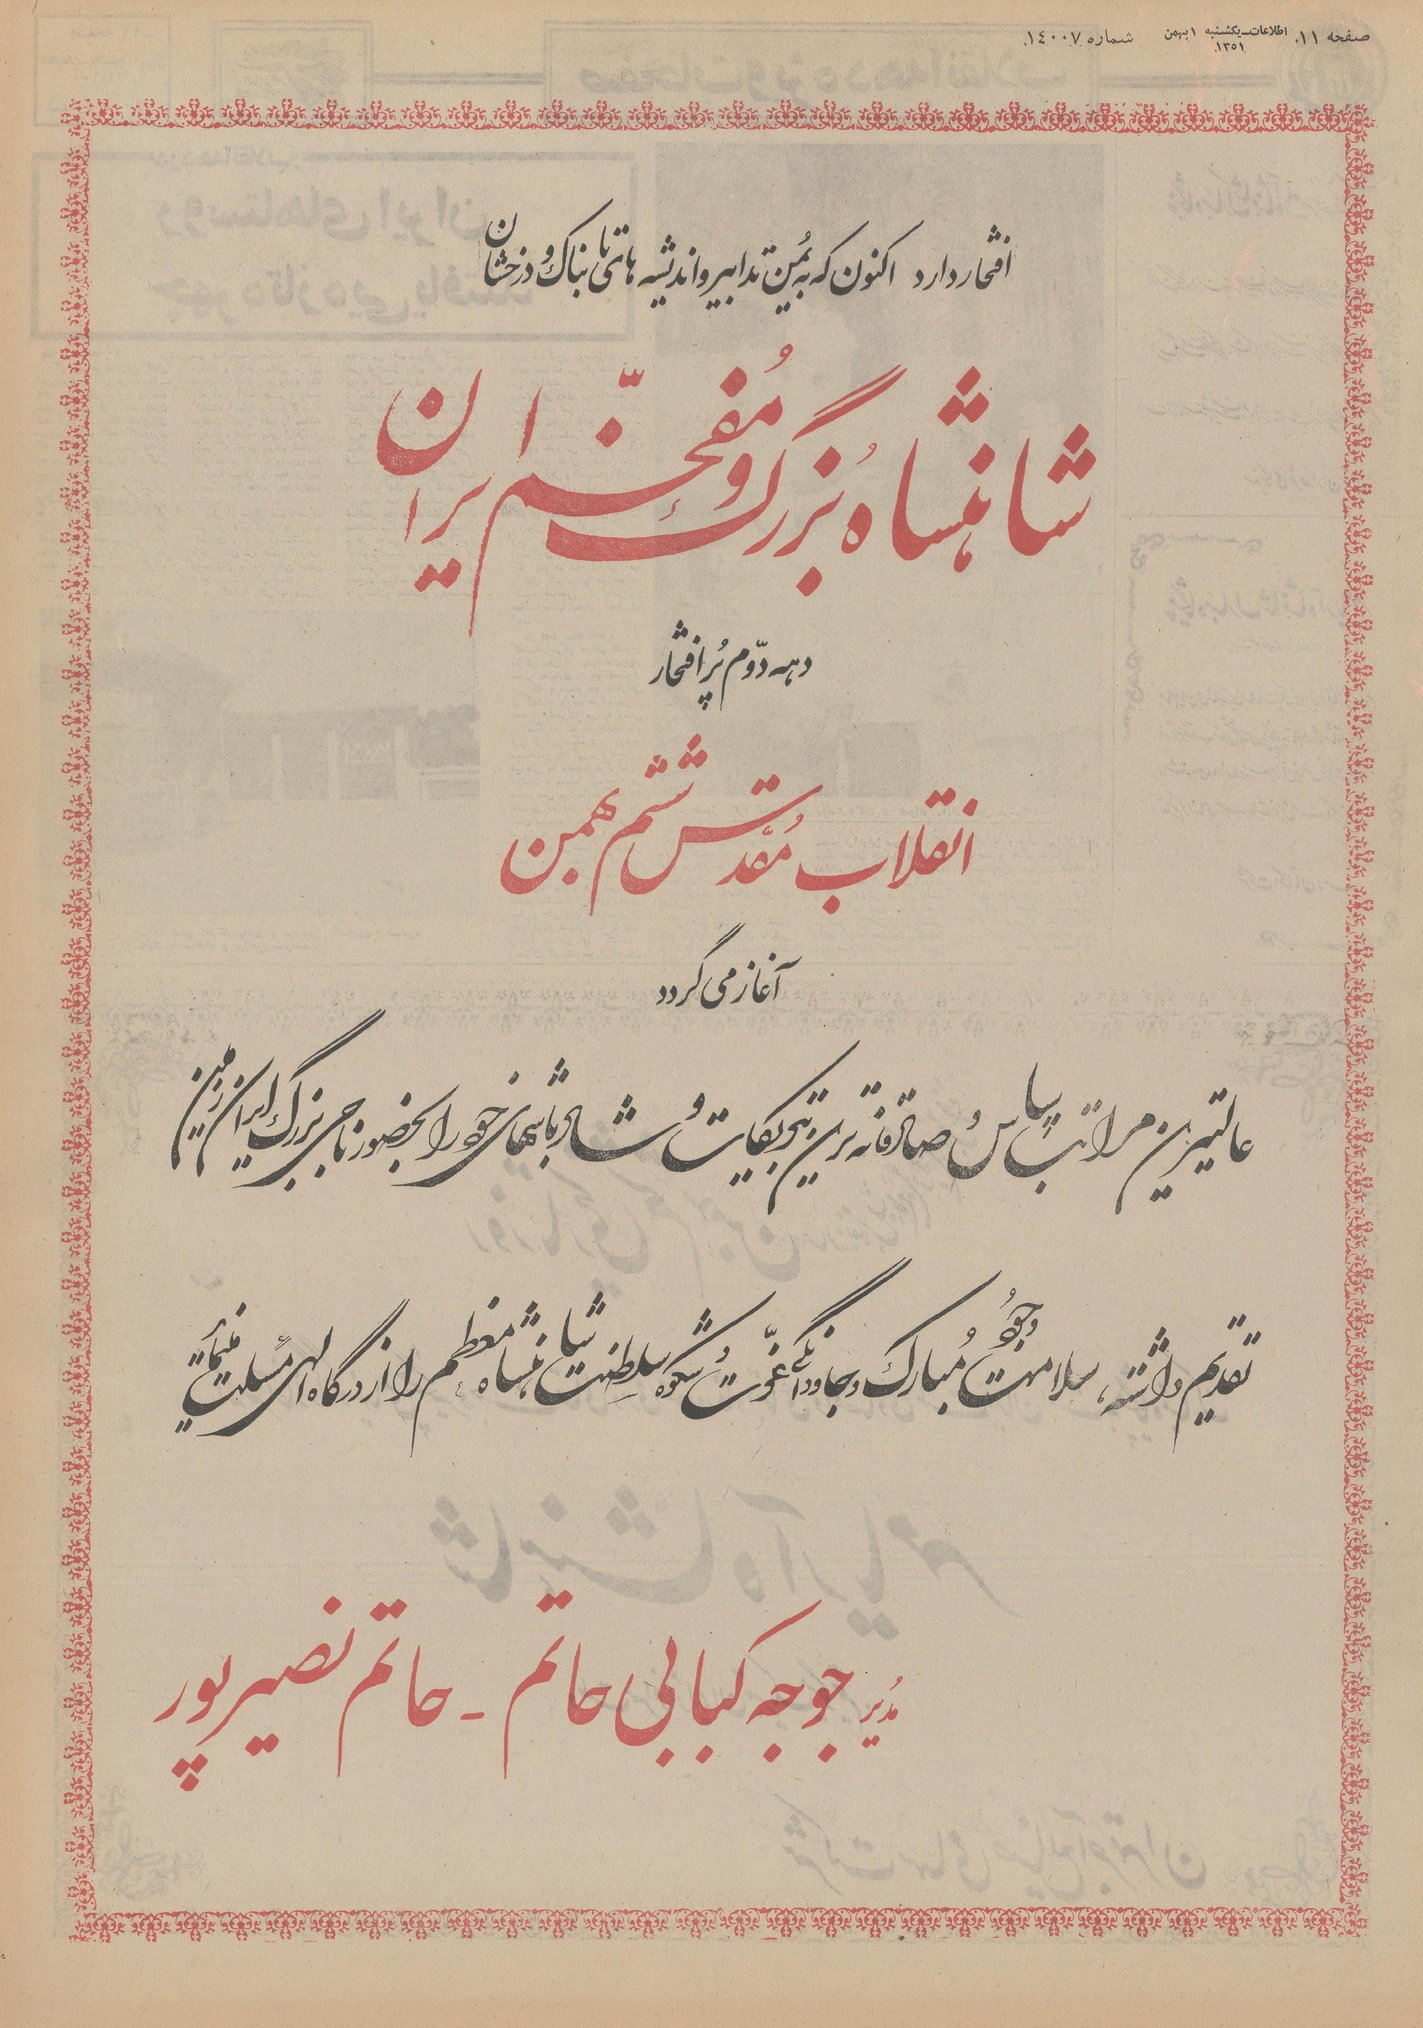 صفحه ۱۱. اطلاعات ـ یکشنبه ۱ بهمن ۱۳۵۱. شماره ۱۴۰۰۷.
افتخار دارد اکنون که به یُمن تدابیر و اندیشه های تابناک و درخشان
شاهنشاه بزرگ و مُفخّم ایران
دهه دوّم پُر افتخار
انقلاب مُقدّس ششم بهمن
آغاز می گردد
عالیترین مراتب سپاس و صادقانه ترین تبریکات و شادباشهای خود را بحضور ناجی بزرگ ایران زمین
تقدیم داشته، سلامت وجود مُبارک و جاودانگی عزّت و شکوه سلطنت شاهنشاه معظم را از درگاه الهی مسئلت مینمایم
مُدیر جوجه کبابی حاتم ـ حاتم نصیرپور